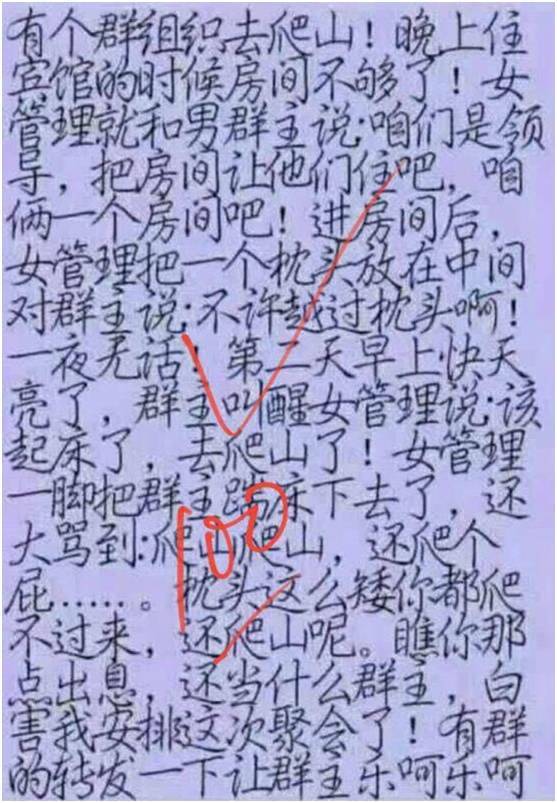 有个群组织去爬山！晚上住
宾馆的时候房间不够了！女
管理就和男群主说:咱们是领
导，把房间让他们住吧，咱
俩一个房间吧！进房间后，
女管理把一个枕头放在中间
对群主说:不许越过枕头啊！
一夜无话！第二天早上快天
亮了，群主叫醒女管理说:该
起床了，去爬山了！女管理
一脚把群主踹床下去了，还
大骂到:爬山爬山，还爬个
屁……。枕头这么矮你都爬
不过来，还爬山呢。瞧你那
点出息，还当什么群主，白
害我安排这次聚会了！有群
的转发一下让群主乐呵乐呵
100